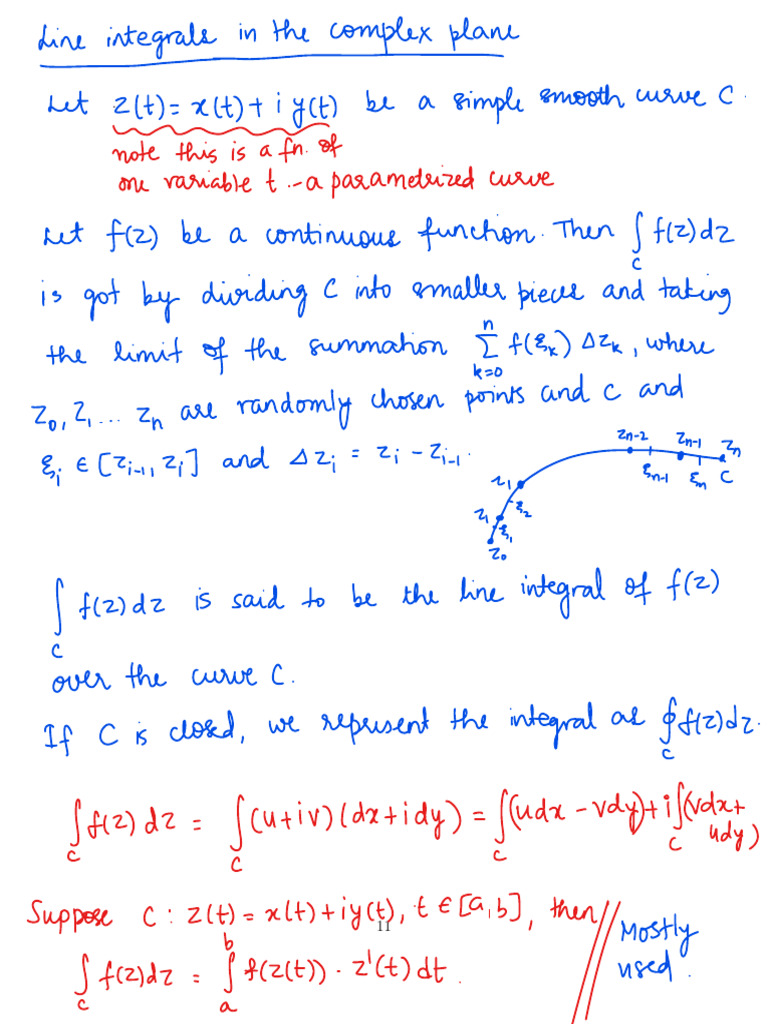 Line integrals in the complex plane
Let z(t) = x(t) + i y(t) be a simple smooth curve C.
note this is a fn. of
one variable t - a parametrized curve
Let f(z) be a continuous function. Then ∫_C f(z)dz
is got by dividing C into smaller pieces and taking
the limit of the summation Σ_{k=0}^{n} f(ξ_k) Δz_k, where
z_0, z_1 ... z_n are randomly chosen points and C and
ξ_i ∈ [z_{i-1}, z_i] and Δz_i = z_i - z_{i-1}.
z_{n-2} z_{n-1} z_n
ξ_{n-1} ξ_n C
z_1
z_1 ξ_2
ξ_1
z_0
∫_C f(z)dz is said to be the line integral of f(z)
over the curve C.
If C is closed, we represent the integral as ∮_C f(z)dz.
∫_C f(z)dz = ∫_C (u+iv)(dx+idy) = ∫_C (udx - vdy) + i∫_C (vdx + udy)
Suppose C : z(t) = x(t) + iy(t), t ∈ [a,b], then
11
∫_C f(z)dz = ∫_a^b f(z(t)) · z'(t) dt.
Mostly
used.